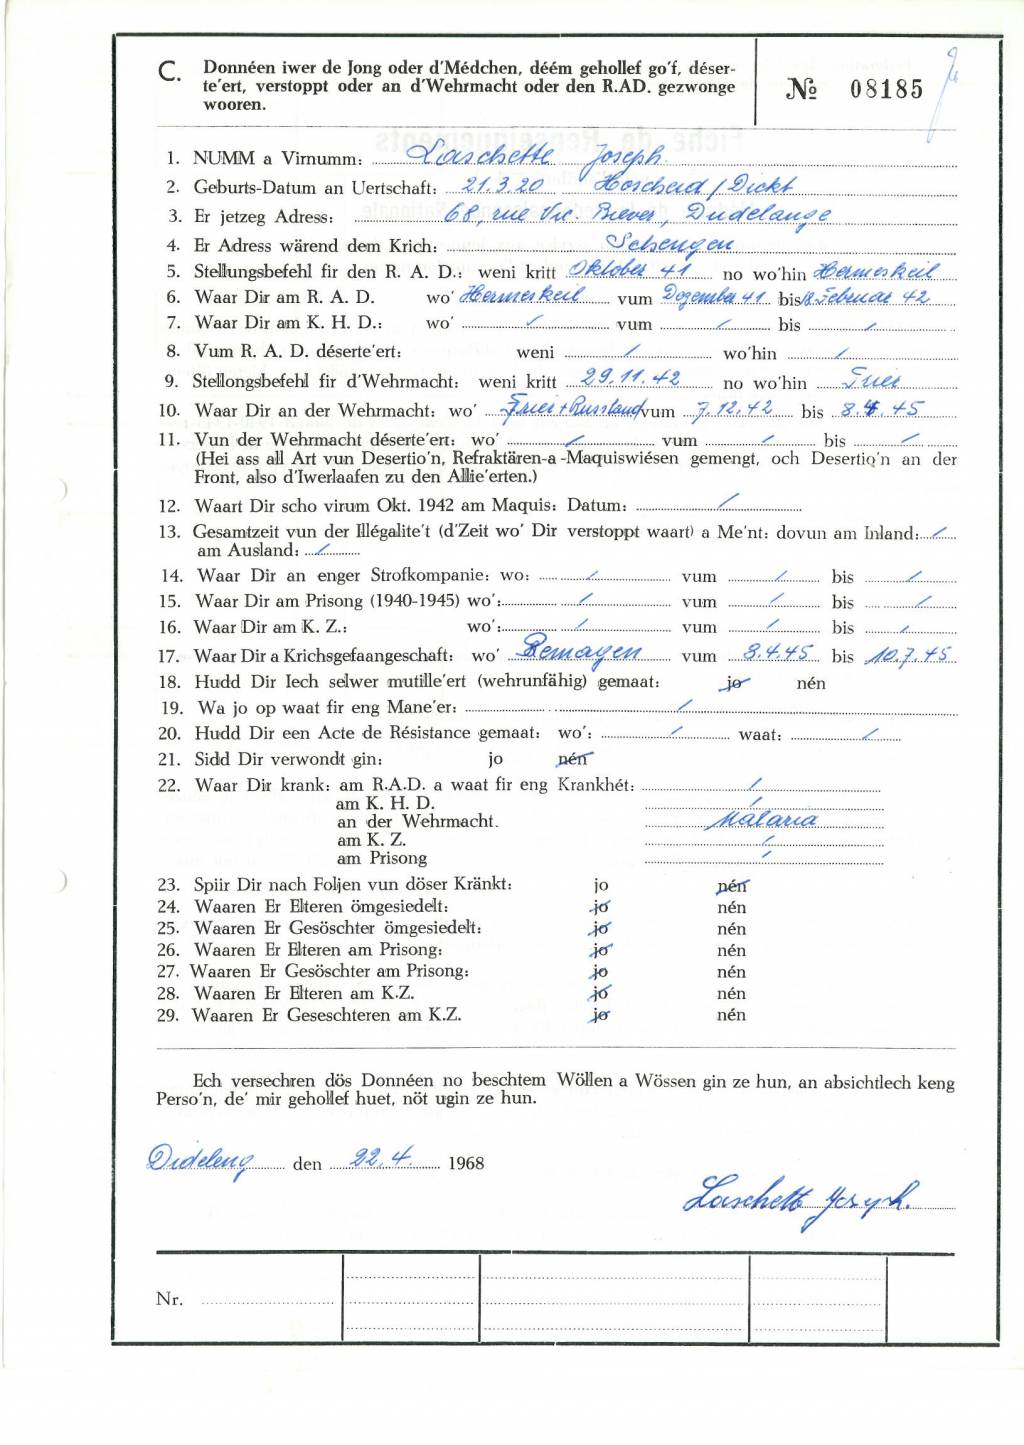 C. Donnéen iwer de Jong oder d'Médchen, déém gehollef go'f, déser-
te'ert, verstoppt oder an d'Wehrmacht oder den R.AD. gezwonge
wooren.
№ 08185
1. NUMM a Virnumm: Laschette Joseph
2. Geburts-Datum an Uertschaft: 21.3.20 Hoscheid/Dickt
3. Er jetzeg Adress: 68, rue Vic. Biever, Dudelange
4. Er Adress wärend dem Krich: Schengen
5. Stellungsbefehl fir den R. A. D.: weni kritt Oktober 41 no wo'hin Hermeskeil
6. Waar Dir am R. A. D. wo' Hermeskeil vum Dezember 41 bis 18 Februar 42
7. Waar Dir am K. H. D.: wo' / vum / bis /
8. Vum R. A. D. déserte'ert: weni / wo'hin /
9. Stellongsbefehl fir d'Wehrmacht: weni kritt 29.11.42 no wo'hin Trier
10. Waar Dir an der Wehrmacht: wo' Trier + Russland vum 7.12.42 bis 8.4.45
11. Vun der Wehrmacht déserte'ert: wo' / vum / bis /
(Hei ass all Art vun Desertio'n, Refraktären-a -Maquiswiésen gemengt, och Desertio'n an der
Front, also d'Iwerlaafen zu den Allie'erten.)
12. Waart Dir scho virum Okt. 1942 am Maquis: Datum: /
13. Gesamtzeit vun der Illégalite't (d'Zeit wo' Dir verstoppt waart) a Me'nt: dovun am Inland: /
am Ausland: /
14. Waar Dir an enger Strofkompanie: wo: / vum / bis /
15. Waar Dir am Prisong (1940-1945) wo': / vum / bis /
16. Waar Dir am K. Z.: wo': / vum / bis /
17. Waar Dir a Krichsgefaangeschaft: wo' Remagen vum 8.4.45 bis 10.7.45
18. Hudd Dir Iech selwer mutille'ert (wehrunfähig) gemaat: jo nén
19. Wa jo op waat fir eng Mane'er: /
20. Hudd Dir een Acte de Résistance gemaat: wo': / waat: /
21. Sidd Dir verwondt gin: jo nén
22. Waar Dir krank: am R.A.D. a waat fir eng Krankhét: /
am K. H. D. /
an der Wehrmacht. Malaria
am K. Z. /
am Prisong /
23. Spiir Dir nach Foljen vun döser Kränkt: jo nén
24. Waaren Er Elteren ömgesiedelt: jo nén
25. Waaren Er Gesöschter ömgesiedelt: jo nén
26. Waaren Er Elteren am Prisong: jo nén
27. Waaren Er Gesöschter am Prisong: jo nén
28. Waaren Er Elteren am K.Z. jo nén
29. Waaren Er Geseschteren am K.Z. jo nén
Ech versechren dös Donnéen no beschtem Wöllen a Wössen gin ze hun, an absichtlech keng
Perso'n, de' mir gehollef huet, nöt ugin ze hun.
Dideleng den 22.4. 1968
Laschette Joseph.
Nr.